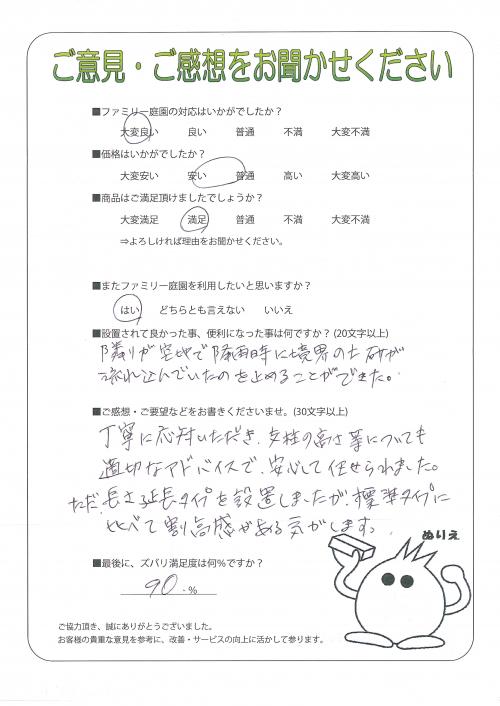 ご意見・ご感想をお聞かせください
■ファミリー庭園の対応はいかがでしたか？
大変良い 良い 普通 不満 大変不満
■価格はいかがでしたか？
大変安い 安い 普通 高い 大変高い
■商品はご満足頂けましたでしょうか？
大変満足 満足 普通 不満 大変不満
⇒よろしければ理由をお聞かせください。
■またファミリー庭園を利用したいと思いますか？
はい どちらとも言えない いいえ
■設置されて良かった事、便利になった事は何ですか？(20文字以上)
隣りが空地で降雨時に境界の土砂が
流れ込んでいたのを止めることができた。
■ご感想・ご要望などをお書きくださいませ。(30文字以上)
丁寧に応対いただき、支柱の高さ等についても
適切なアドバイスで、安心して任せられました。
ただ、長さ延長タイプを設置しましたが、標準タイプに
比べて割高感がある気がします。
ぬりえ
■最後に、ズバリ満足度は何％ですか？
90 ・%
ご協力頂き、誠にありがとうございました。
お客様の貴重な意見を参考に、改善・サービスの向上に活かして参ります。